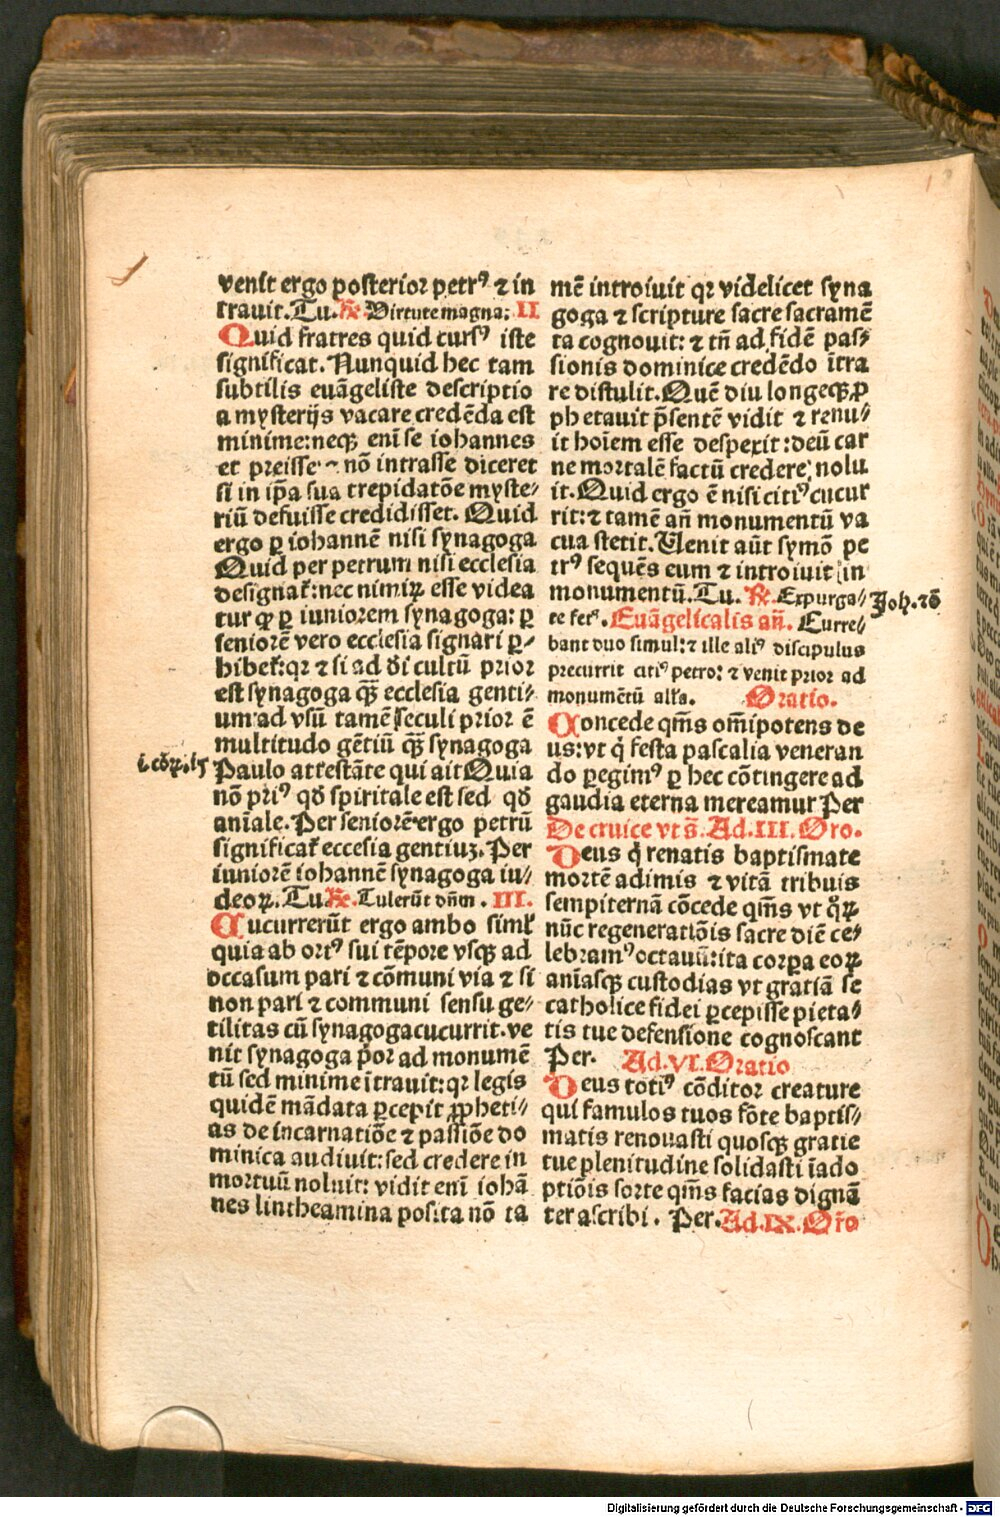 venit ergo posterior petrꝰ ⁊ in
trauit. Tu. ℟. Virtute magna: II
Quid fratres quid cursꝰ iste
significat. Nunquid hec tam
subtilis euāgeliste descriptio
a mysterijs vacare credēda est
minime: neqꝫ enī se iohannes
et preisse ⁊ nō intrasse diceret
si in ip̄a sua trepidatōe myste⸗
riū defuisse credidisset. Quid
ergo ꝑ iohannē nisi synagoga
Quid per petrum nisi ecclesia
designat̄: nec nimiꝝ esse videa
tur ꝙ ꝑ iuniorem synagoga: ꝑ
seniorē vero ecclesia signari ꝑ⸗
hibet̄: qꝛ ⁊ si ad dei cultū prior
est synagoga qꝫ̄ ecclesia genti⸗
um ad vsū tamē seculi prior ē
multitudo gētiū qꝫ̄ synagoga
i coꝝ. 15 Paulo attestāte qui ait Quia
nō priꝰ qd̄ spiritale est sed qd̄
aniāle. Per seniorē ergo petrū
significat̄ eccesia gentiuꝫ. Per
iuniorē iohannē synagoga iu⸗
deoꝝ. Tu ℟. Tulerūt dn̄m. III.
Cucurrerūt ergo ambo siml̄
quia ab ortꝰ sui tēpore vsqꝫ ad
occasum pari ⁊ cōmuni via ⁊ si
non pari ⁊ communi sensu ge⸗
tilitas cū synagoga cucurrit. ve
nit synagoga p̄or ad monumē
tū sed minime ītrauit: qꝛ legis
quidē mādata ꝑcepit ꝓpheti⸗
as de incarnatiōe ⁊ passiōe do
minica audiuit: sed credere in
mortuū noluit: vidit enī iohā
nes lintheamina posita nō ta
mē introiuit qꝛ videlicet syna
goga ⁊ scripture sacre sacramē
ta cognouit: ⁊ tn̄ ad fidē pas⸗
sionis dominice credēdo ītra
re distulit. Quē diu longeqꝫ ꝓ
phetauit p̄sentē vidit ⁊ renu⸗
it hoīem esse despexit: deū car
ne mortalē factū credere nolu
it. Quid ergo ē nisi citiꝰ cucur
rit: ⁊ tamē an̄ monumentū va
cua stetit. Uenit aūt symō pe
trꝰ sequēs eum ⁊ introiuit in
monumentū. Tu. ℟. Expurga⸗ Joh. 20
te ferꝰ. Euāgelicalis an̄. Curre⸗
bant duo simul: ⁊ ille aliꝰ discipulus
precurrit citiꝰ petro: ⁊ venit prior ad
monumētū all'a. Oratio.
Concede qm̄s om̄ipotens de
us: vt q̇ festa pascalia veneran
do ꝑegimꝰ ꝑ hec cōtingere ad
gaudia eterna mereamur Per
De cruice vt s̄. Ad. III. Oro.
Deus q̇ renatis baptismate
mortē adimis ⁊ vitā tribuis
sempiternā cōcede qm̄s vt qꝝ
nūc regeneratiōis sacre diē ce⸗
lebramꝰ octauū: ita corꝑa eoꝝ
aniāsqꝫ custodias vt gratiā se
catholice fidei ꝑcepisse pieta⸗
tis tue defensione cognoscant
Per. Ad. VI. Oratio
Deus totiꝰ cōditor creature
qui famulos tuos fōte baptis⸗
matis renouasti quosqꝫ gratie
tue plenitudine solidasti īado
ptiōis sorte qm̄s facias dignā
ter ascribi. Per. Ad. IX. Or̄o
Digitalisierung gefördert durch die Deutsche Forschungsgemeinschaft - DFG